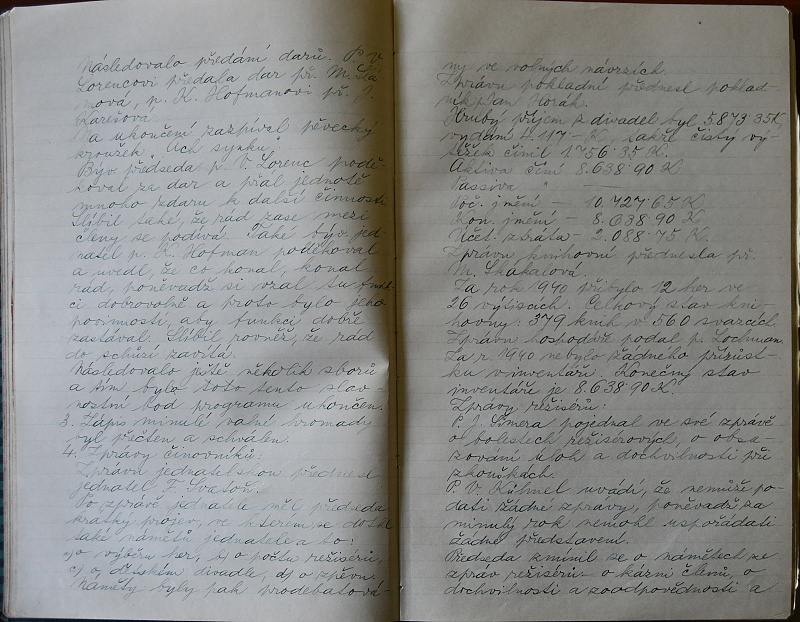 Následovalo předání darů. P. V.
Lorencovi předala dar př. M. Slá-
mova, p. K. Hofmanovi př. J.
Karešova.
Na ukončení zazpíval pěvecký
kroužek "Ach synku".
Býv. předseda p. V. Lorenc podě-
koval za dar a přál jednotě
mnoho zdaru k další činnosti.
Slíbil také, že rád zase mezi
členy se podívá. Také býv. jed-
natel p. K. Hofman poděkoval
a uvedl, že co konal, konal
rád, poněvadž si vzal tu funk-
ci dobrovolně a proto bylo jeho
povinností, aby funkci dobře
zastával. Slíbil rovněž, že rád
do schůzí zavítá.
Následovalo ještě několik sborů
a tím bylo tento slav-
nostní bod programu ukončen.
3. Zápis minulé valné hromady
byl přečten a schválen.
4. Zprávy činovníků:
Zprávu jednatelskou přednesl
jednatel F. Svatoň.
Po zprávě jednatele měl předseda
krátký projev, ve kterém se dotkl
také námětů jednatele a to:
a) o výběru her, b) o počtu režisérů,
c) o dětském divadle, d) o zpěvu.
Náměty byly pak prodebatová-
ny ve volných návrzích.
Zprávu pokladní přednesl poklad-
ník pan Horák.
Hrubý příjem z divadel byl 5.873·35 K
vydání 4.117·– K, takže čistý vý-
těžek činil 1.756·35 K.
Aktiva činí 8.638·90 K
Passiva " –
Poč. jmění – 10.727·65 K
Kon. jmění – 8.638·90 K
Účet. ztráta – 2.088·75 K.
Zprávu knihovní přednesla př.
M. Skákalova.
Za rok 1940 přibylo 12 her ve
26 výtiscích. Celkový stav kni-
hovny: 379 knih v 560 svazcích.
Zprávu hospodář podal p. Lochman.
Za r. 1940 nebylo žádného přírůst-
ku v inventáři. Konečný stav
inventáře je 8.638·90 K.
Zprávy režisérů:
P. J. Šimera pojednal ve své zprávě
o bolestech režisérových, o obsa-
zování úloh a dochvilnosti při
zkouškách.
P. V. Kühnel uvádí, že nemůže po-
dati žádné zprávy, poněvadž za
minulý rok nemohl uspořádati
žádné představení.
Předseda zmínil se o námětech ze
zpráv režisérů: o kázni členů, o
dochvilnosti a zodpovědnosti a